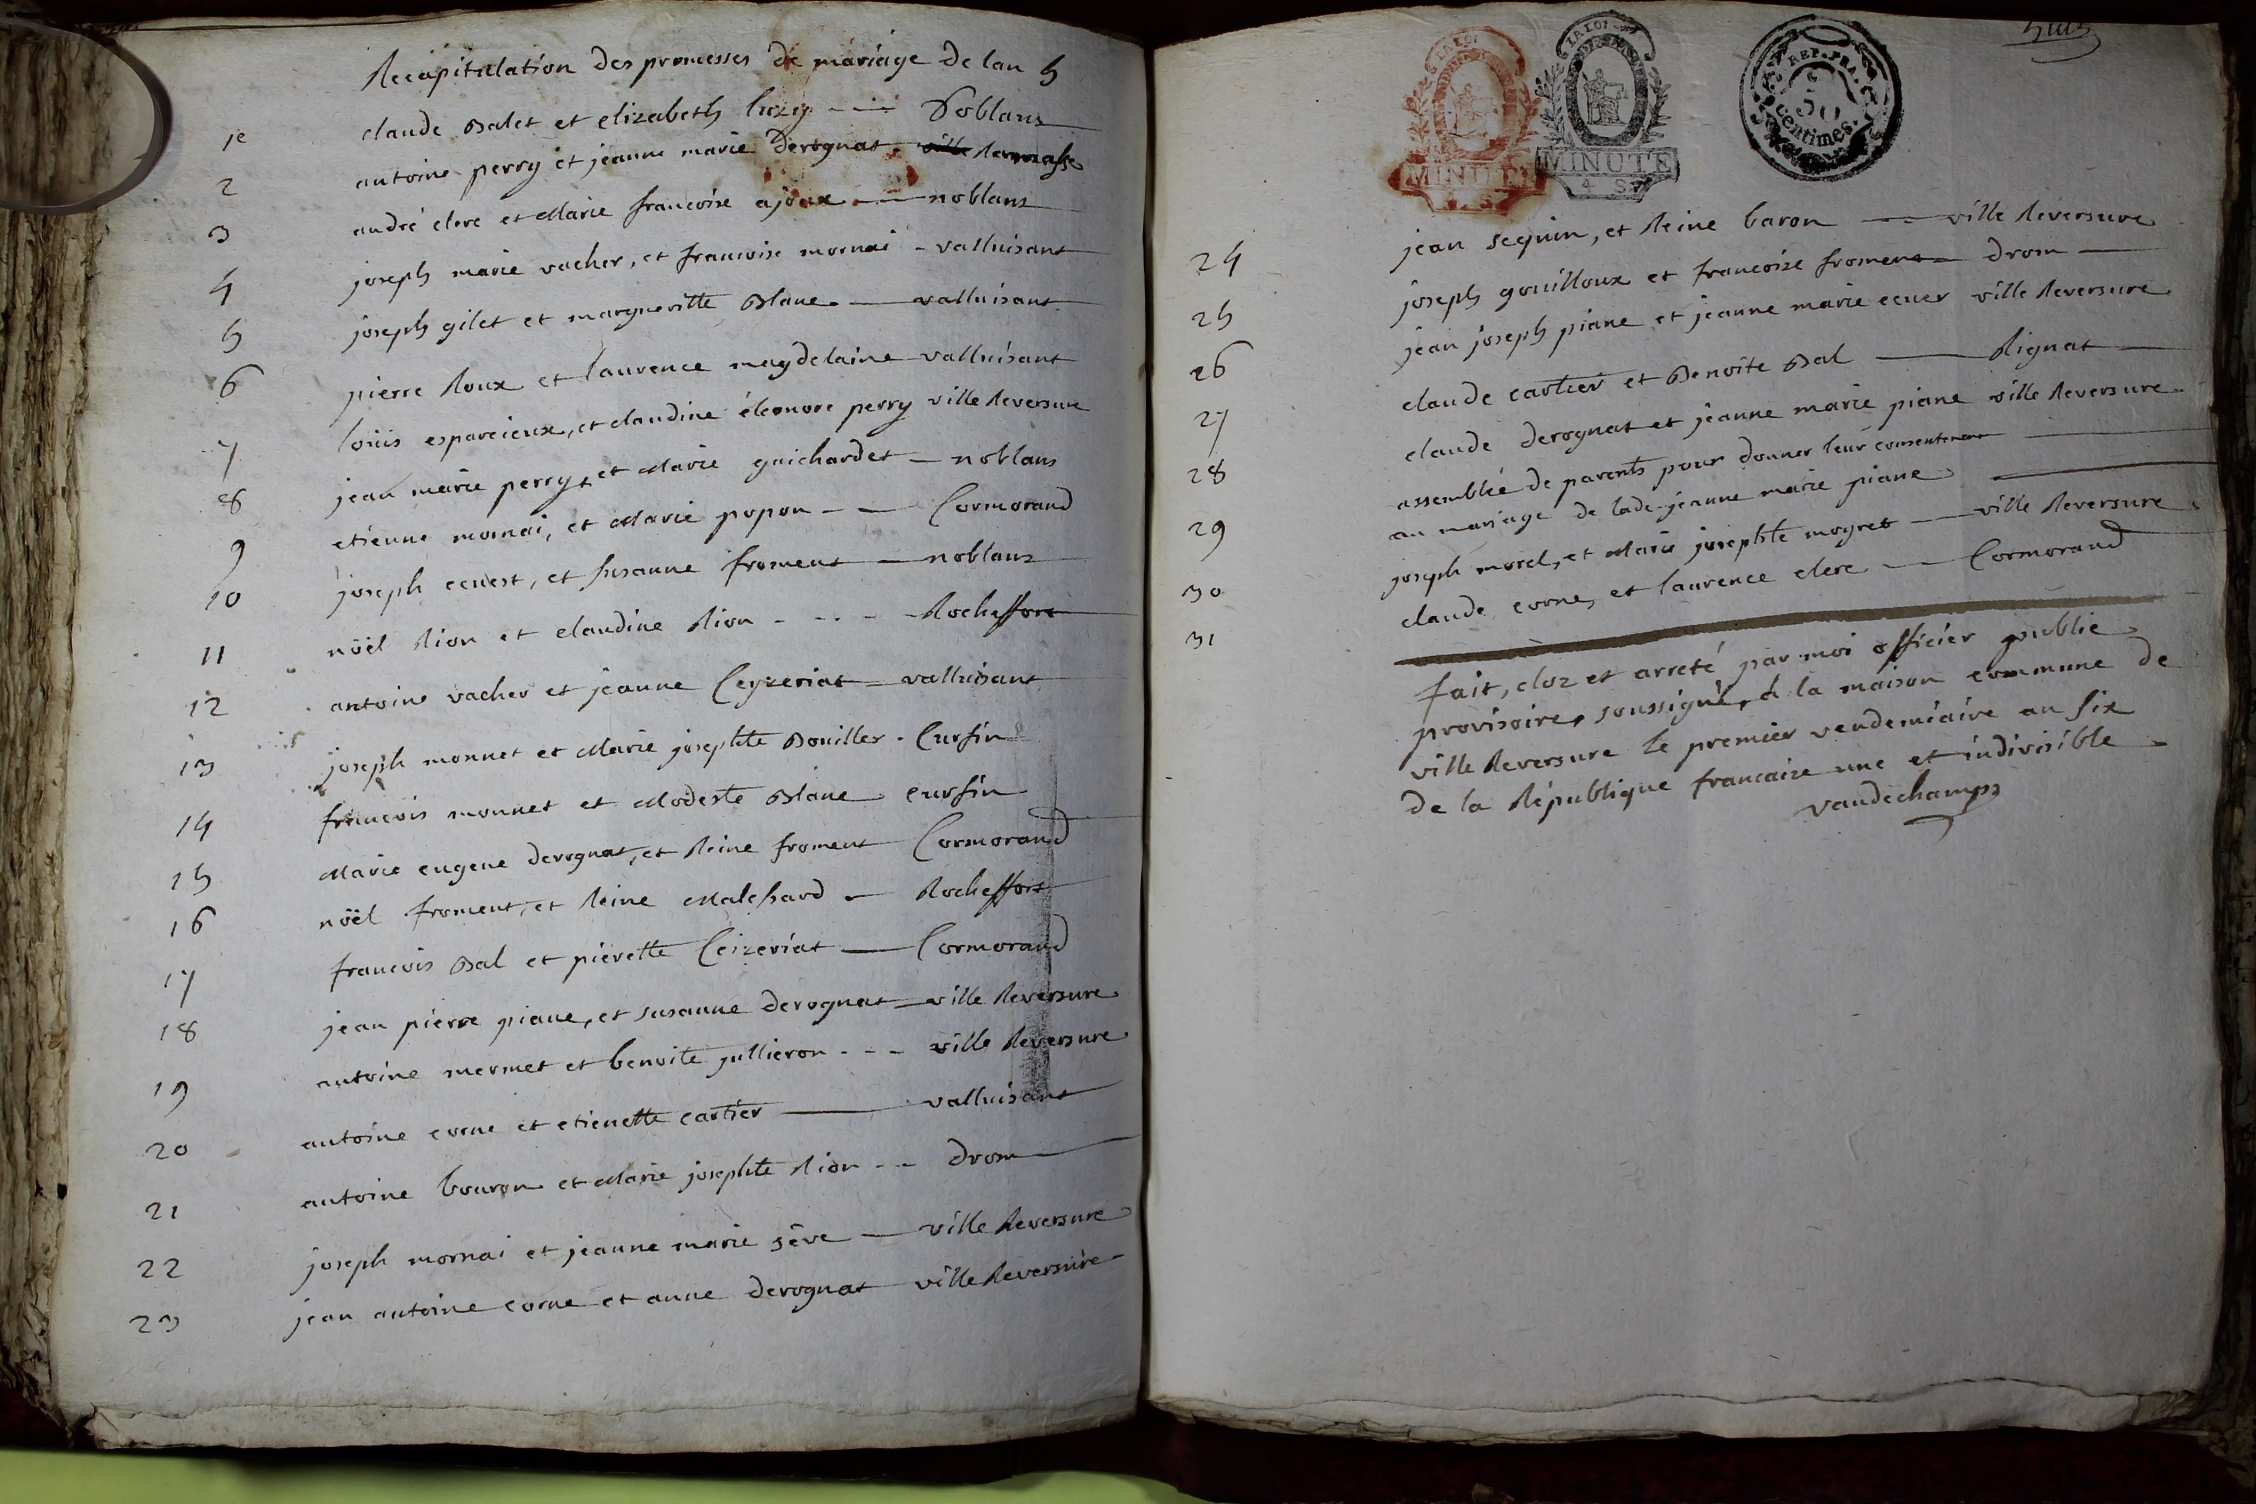 Recapitulation des promesses de mariage de lan 5
1e claude Balet et elizabeth luzy noblans
2 antoine perry et jeanne marie derognat ville Revermasse
3 andré clerc et Marie francoise ajoux noblans
4 joseph marie vacher, et francoise mornai valluisant
5 joseph gilet et margueritte Blanc valluisant
6 pierre Roux et laurence magdelaine valluisant
7 loüis esparcieux, et claudine éleonore perry ville Reversure
8 jean marie perry, et Marie guichardet noblans
9 etienne mornai, et Marie popon Cormorand
10 joseph ecuert, et susanne froment noblans
11 nöël Rion et claudine Rion Rocheffort
12 antoine vacher et jeanne Ceyzeriat valluisant
13 joseph monnet et Marie josephte Bouiller Cursin
14 francois monnet et Modeste Blanc cursin
15 Marie eugene derognat, et Reine froment Cormorand
16 nöël froment, et Reine Malchard Rocheffort
17 francois Bal et pierette Ceizeriat Cormorand
18 jean pierre piane, et susanne derognat ville Reversure
19 antoine mermet et benoite jullieron ville Reversure
20 antoine corne et etienette cartier valluisant
21 antoine bouron et Marie josephte Rion drom
22 joseph mornai et jeanne marie sève ville Reversure
23 jean antoine corne et anne derognat ville Reversure
LA LOI
MINUTE
4 S
LA LOI
MINUTE
4 S
REP. FRA.
50
centimes.
huit
24 jean seguin, et Reine baron ville Reversure
25 joseph gouilloux et francoise froment drom
26 jean joseph piane et jeanne marie ecuer ville Reversure
27 claude cartier et Benoite Bal Rignat
28 claude derognat et jeanne marie piane ville Reversure
29 assemblée de parents pour donner leur consentement
au mariage de lade jeanne marie piane
30 joseph morel, et Marie josephte mogret ville Reversure
31 claude corne, et laurence clerc Cormorand
fait, cloz et arreté par moi officier public
provisoire, soussigné, à la maison commune de
ville Reversure le premier vendemiaire an six
de la République francaise une et indivisible
vandechamps